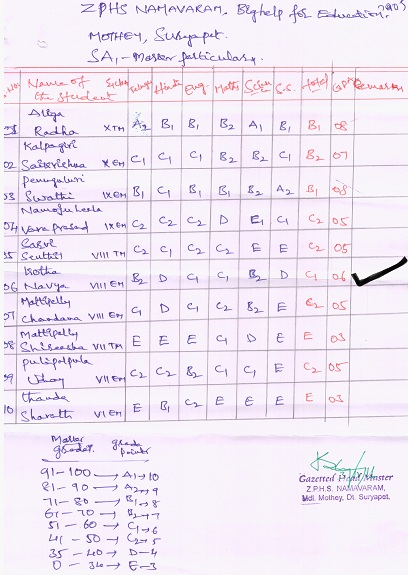 ZPHS NAMAVARAM, Big help for Education,
MOTHEY, Suryapet.
SA1, - Master particulars.
Name of the Student Telugu Hindi Eng Maths Scien S.S. Total GPA Remarks
Radha X TM A2 B1 B1 B2 A1 B1 B1 08
Kalpagiri
02 Saikrishna X EM C1 C1 C1 B2 B2 C1 B2 07
Penuguluri
03 Swathi IX EM B1 C1 B1 B1 B2 A2 B1 08
04 Vara prasad IX EM C2 C2 C2 D E1 C1 C2 05
05 VIII TM C2 C1 C2 C2 E E C2 05
06 Navya VIII EM B2 D C1 C1 B2 D C1 06
Mattipelly
07 Chandana VIII EM C1 D C1 C2 B2 E 05
Mattipelly
08 Shireesha VII TM E E E C1 D E E 03
pulipalpula
09 Uday VII EM C2 C2 B2 C1 C1 E C2 05
thanda
10 Sharath VI EM E B1 C2 E E E E 03
grades. grade points
91-100 → A1→10
81-90 → A2→9
71-80 → B1→8
61-70 → B2→7
51-60 → C1→6
41-50 → C2→5
35-40 → D-4
0-34 → E-3
Gazetted Head Master
Z.P.H.S. NAMAVARAM,
Mdl. Mothey, Dt. Suryapet.